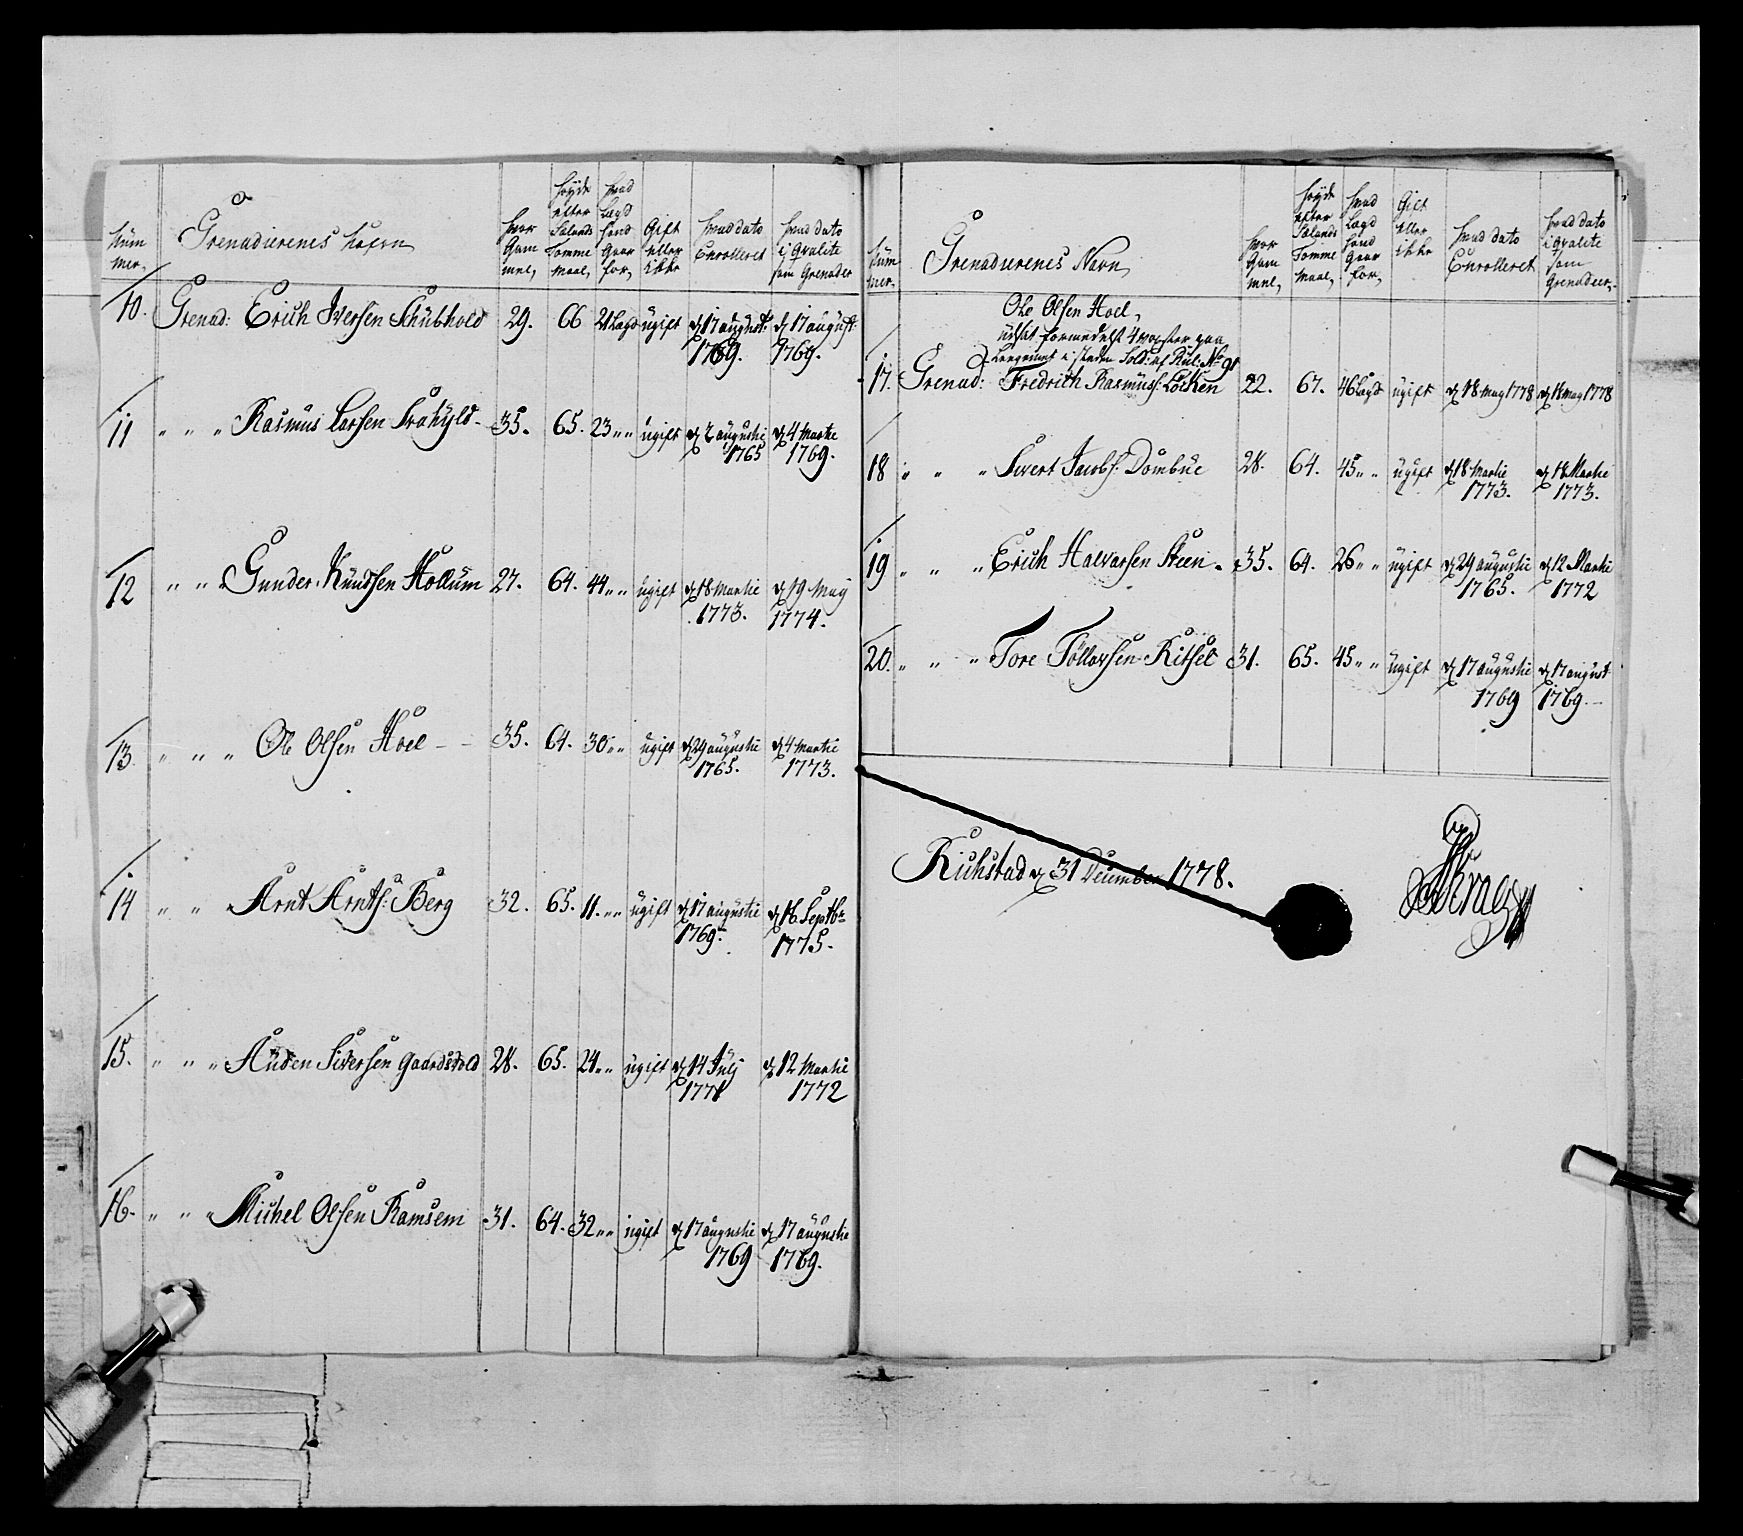 Num
mer,
Grenadierenes Nafn
hvor
Gam
mel,
Høyde
efter
Sælands
Tomme
Maal,
hvad
Lægd
hand
Gaar
for,
Gift
eller
ikke
hvad dato
Enrolleret
hvad dato
i Qvalite
som Grenader
10. Grenad: Erich Iversen Schübhold 29. 66 21 Lægd ugift d 17 august: 1769. d 17 august: 1769.
11 " " " Rasmus Larsen 35. 65. 23 " " ugift d 2 augustie 1765 d 4 Martie 1769.
12 " " Gunder Knudsen Hollum 27. 64. 44 " " ugift d 18 Martie 1773. d 19 May 1774.
13. " " " Ole Olsen Hoel - - 35. 64. 30 " " ugift d 29 augustie 1765. d 4 Martie 1773.
14 " " Arnt Arnts: Berg 32. 65. 11. " " ugift d 17 augustie 1769. d 16 Septbr 1775.
15. " " " Auden Siversen Gaardsvold 28. 65. 24 " " ugift d 14 Julj 1771 d 12 Martie 1772
16. " " " Michel Olsen Ramsem 31. 64. 32 " " ugift d 17 augustie 1769 d 17 augustie 1769.
Num
mer.
Grenadierenes Navn
hvor
Gam
mel,
Høyde
efter
Sælands
Tomme
Maal,
hvad
Lægd
hand
Gaar
for,
Gift
eller
ikke
hvad dato
Enrolleret
hvad dato
i Qvalite
som
Grenadeer,
Ole Olsen Hoel,
udsat formedelst 4 vogster paa
i steden Sold: af Rul: No 91
17. Grenad: Fredrich Rasmus: Løcken 22. 67. 46 Lægd ugift d 18 May 1778 d 18 May 1778
18 " " " Sivert Jacobs: Dombue 28. 64. 45 " " ugift d 18 Martie 1773. d 18 Martie 1773.
19 " " " Erich Halvorsen Steen. 35. 64. 26 " " ugift d 29 augustie 1765. d 12 Martie 1772
20. " " " Tore Tøllovsen Ritsel 31. 65. 45 " " ugift d 17 augustie 1769 d 17 august 1769.
Richstad d 31 December 1778.